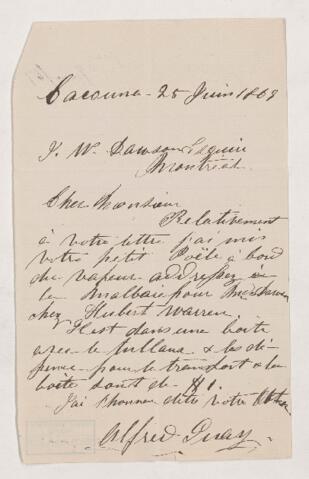 Cacouna - 25 Juin 1869
J. W. Dawson Esquire
Montréal
Cher Monsieur
Relativement
à votre lettre j'ai mis
votre petit Poële à bord
du vapeur addressez
la Malbaie pour Mr Dawson
chez Hubert Warren.
Il est dans une boîte
avec le & les dé-
penses pour le transport & la
boîte sont de $1.
J'ai l'honneur d'être votre
Alfred